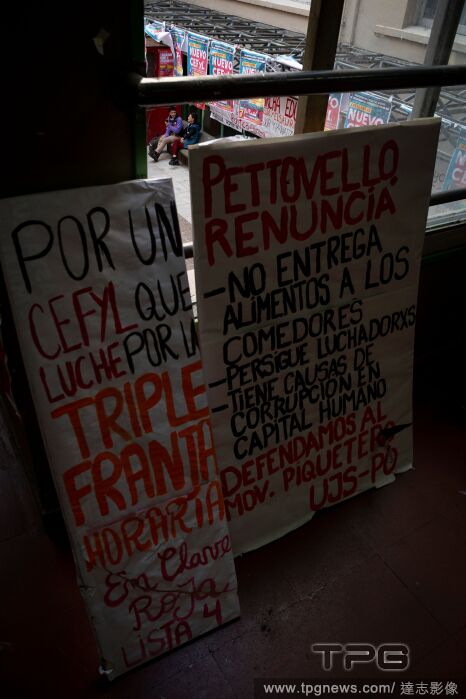 NUEVO
CEFYL
NUEVO
POR UN
CEFYL QUE
LUCHE POR LA
TRIPLE
FRANJA
HORARIA
En Clave
Roja
LISTA 4
PETTOVELLO
RENUNCIA
-NO ENTREGA
ALIMENTOS A LOS
COMEDORES
-PERSIGUE LUCHADORXS
-TIENE CAUSAS DE
CORRUPCIÓN EN
CAPITAL HUMANO
DEFENDAMOS AL
MOV. PIQUETERO
UJS-PO
TPG
www.tpgnews.com/達志影像